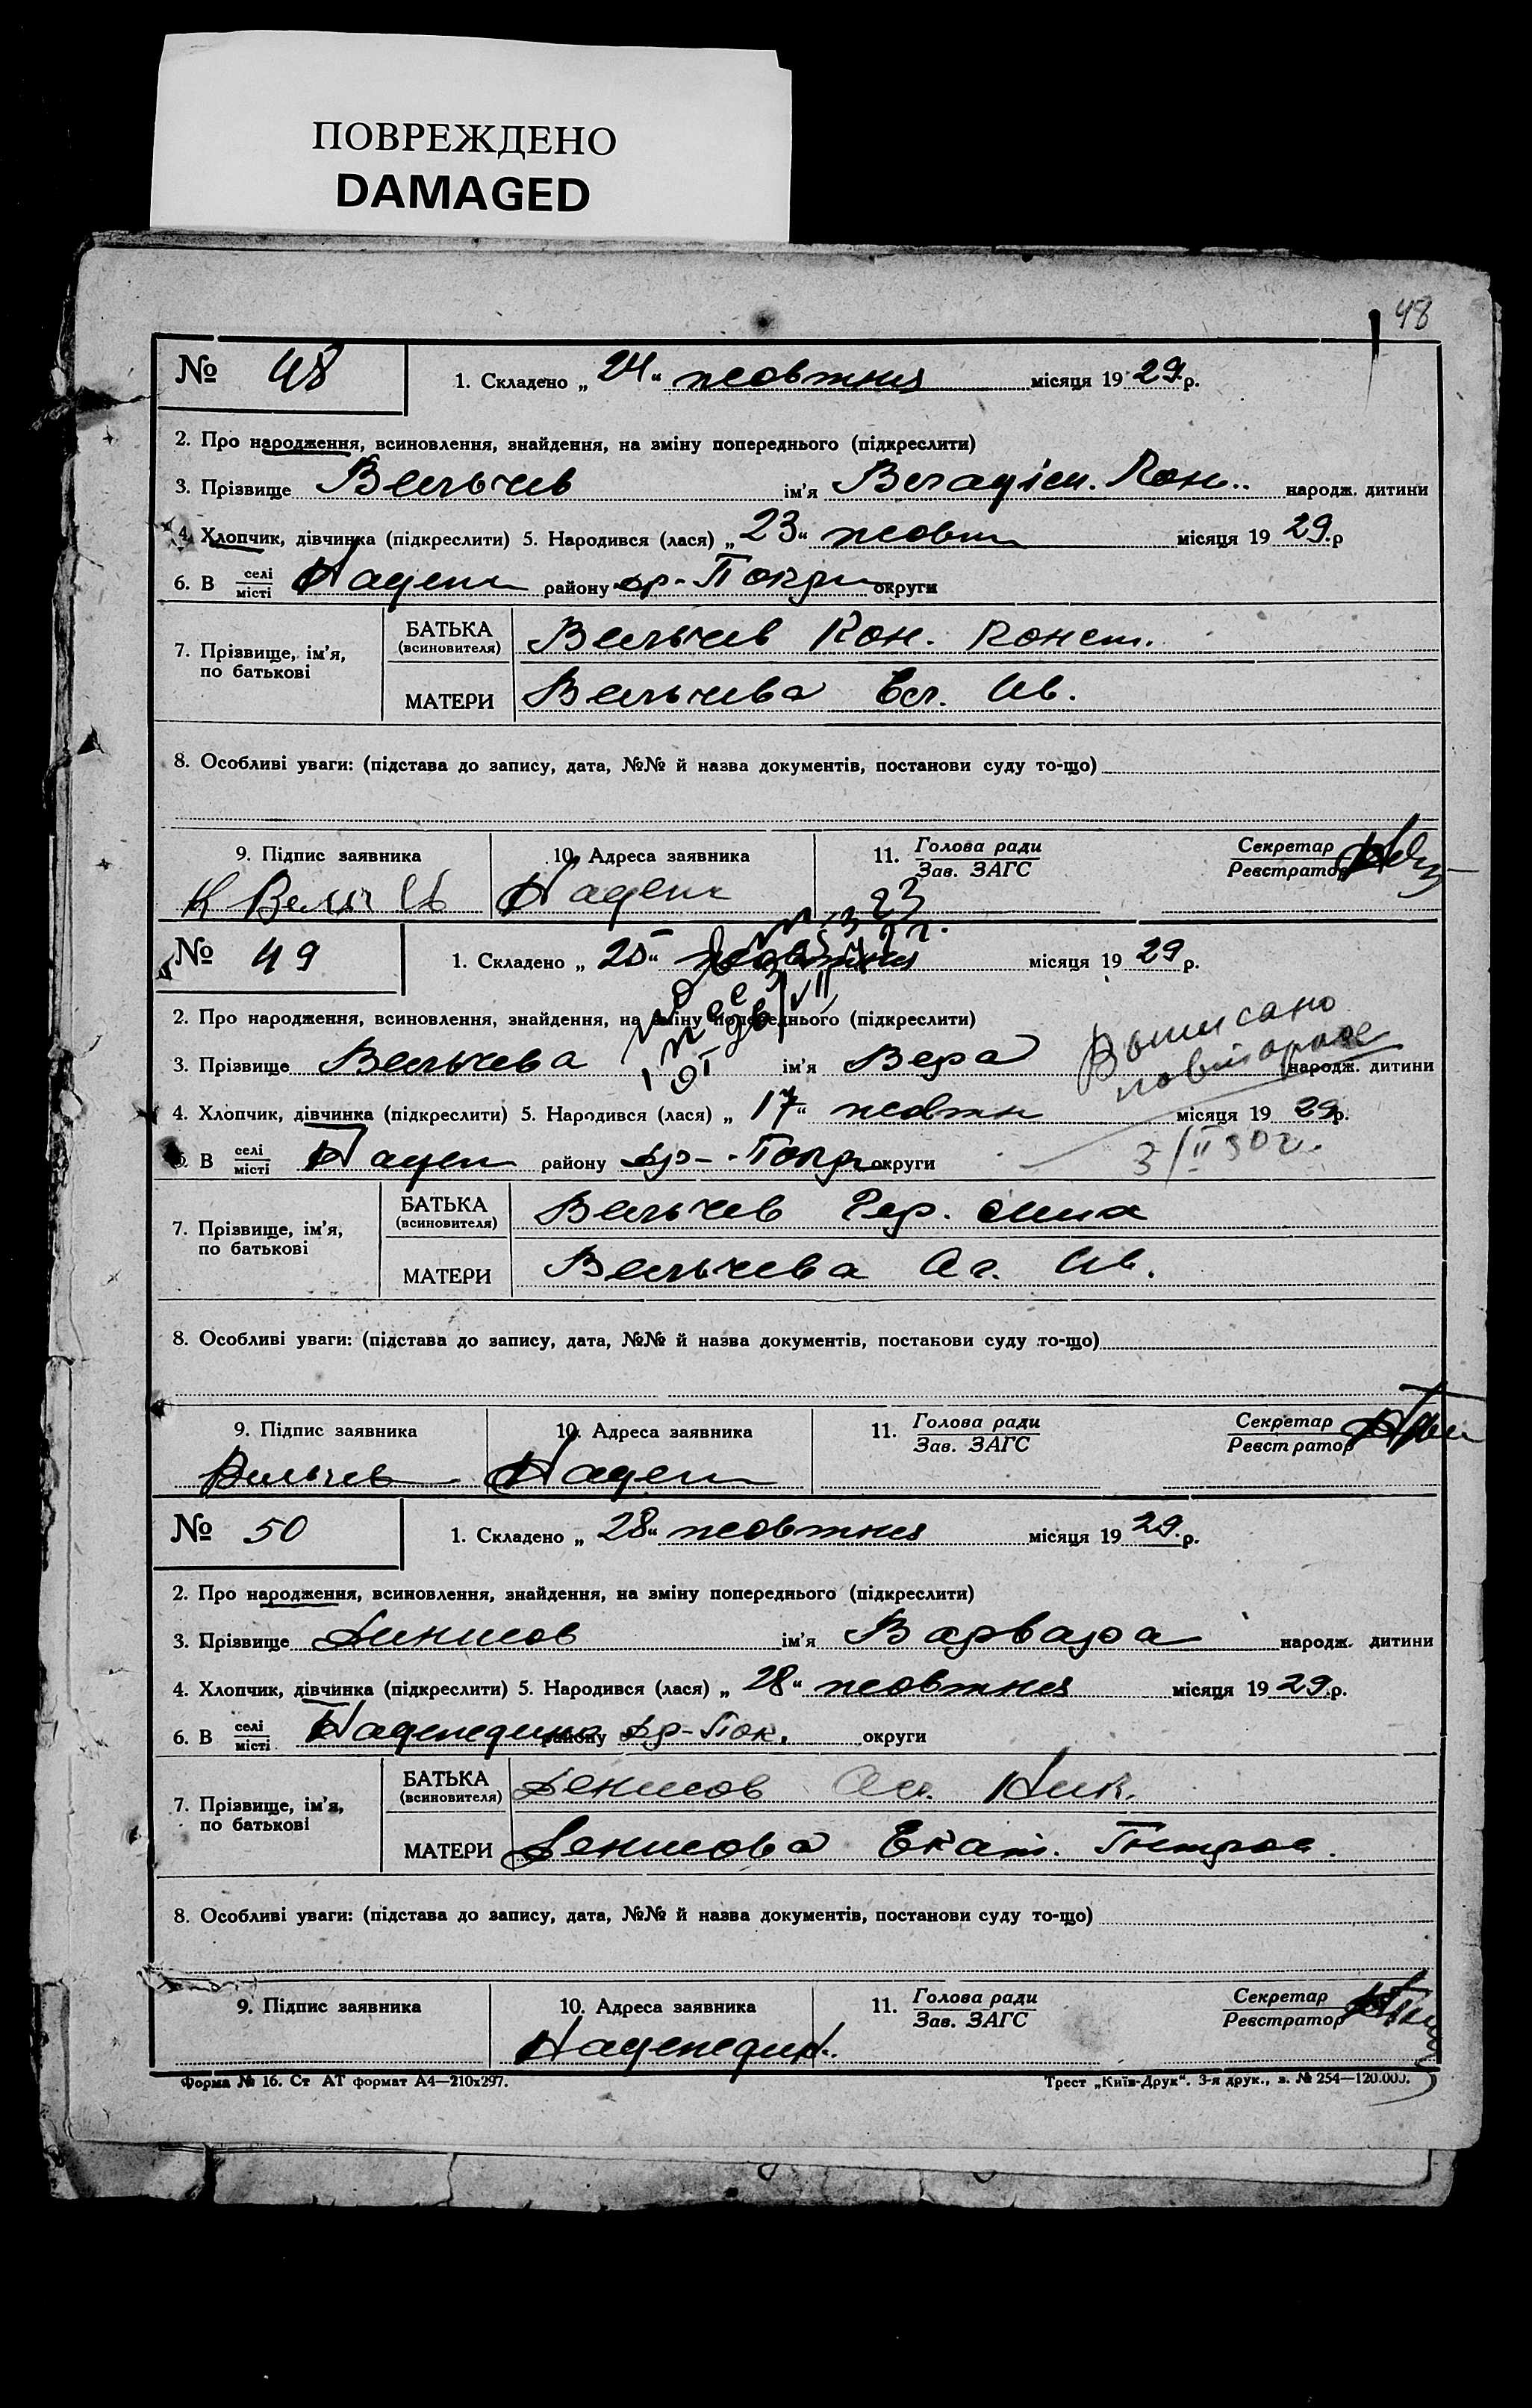 ПОВРЕЖДЕНО
DAMAGED
48
№ 48
1. Складено „ 24 " жовтня місяця 19 29 р.
2. Про народження, всиновлення, знайдення, на зміну попереднього (підкреслити)
3. Прізвище Вельчев ім'я Владісл. Кон. народж. дитини
4. Хлопчик, дівчинка (підкреслити) 5. Народився (лася) „ 23 " жовт місяця 19 29 р
6. В селі/місті Надеж району Др-Покр округи
7. Прізвище, ім'я, по батькові
БАТЬКА (всиновителя) Вельчев Кон. Конст.
МАТЕРИ Вельчева Ел. Ив.
8. Особливі уваги: (підстава до запису, дата, №№ й назва документів, постанови суду то-що)
9. Підпис заявника 10. Адреса заявника 11. Голова ради/Зав. ЗАГС Секретар/Реєстратор
К Вельчев Надеж
№ 49
1. Складено „ 25 " жовтня місяця 19 29 р.
2. Про народження, всиновлення, знайдення, на зміну попереднього (підкреслити)
3. Прізвище Вельчева ім'я Вера народж. дитини
Выписано
повторное
4. Хлопчик, дівчинка (підкреслити) 5. Народився (лася) „ 17 " жовтн місяця 19 29 р.
6. В селі/місті Надеж району Др-Покр округи
3/II 30 г.
7. Прізвище, ім'я, по батькові
БАТЬКА (всиновителя) Вельчев Фер.
МАТЕРИ Вельчева Аг. Ив.
8. Особливі уваги: (підстава до запису, дата, №№ й назва документів, постанови суду то-що)
9. Підпис заявника 10. Адреса заявника 11. Голова ради/Зав. ЗАГС Секретар/Реєстратор
Вельчев Надеж
№ 50
1. Складено „ 28 " жовтня місяця 19 29. р.
2. Про народження, всиновлення, знайдення, на зміну попереднього (підкреслити)
3. Прізвище Динисов ім'я Варвара народж. дитини
4. Хлопчик, дівчинка (підкреслити) 5. Народився (лася) „ 28 " жовтня місяця 19 29 р.
6. В селі/місті Надеждино району Др-Пок. округи
7. Прізвище, ім'я, по батькові
БАТЬКА (всиновителя) Денисов Ал. Ник.
МАТЕРИ Денисова Екат. Петров.
8. Особливі уваги: (підстава до запису, дата, №№ й назва документів, постанови суду то-що)
9. Підпис заявника 10. Адреса заявника 11. Голова ради/Зав. ЗАГС Секретар/Реєстратор
Надеждин.
Форма № 16. Ст АТ формат А4—210х297.
Трест „Київ-Друк“. 3-я друк., з. № 254—120.000.